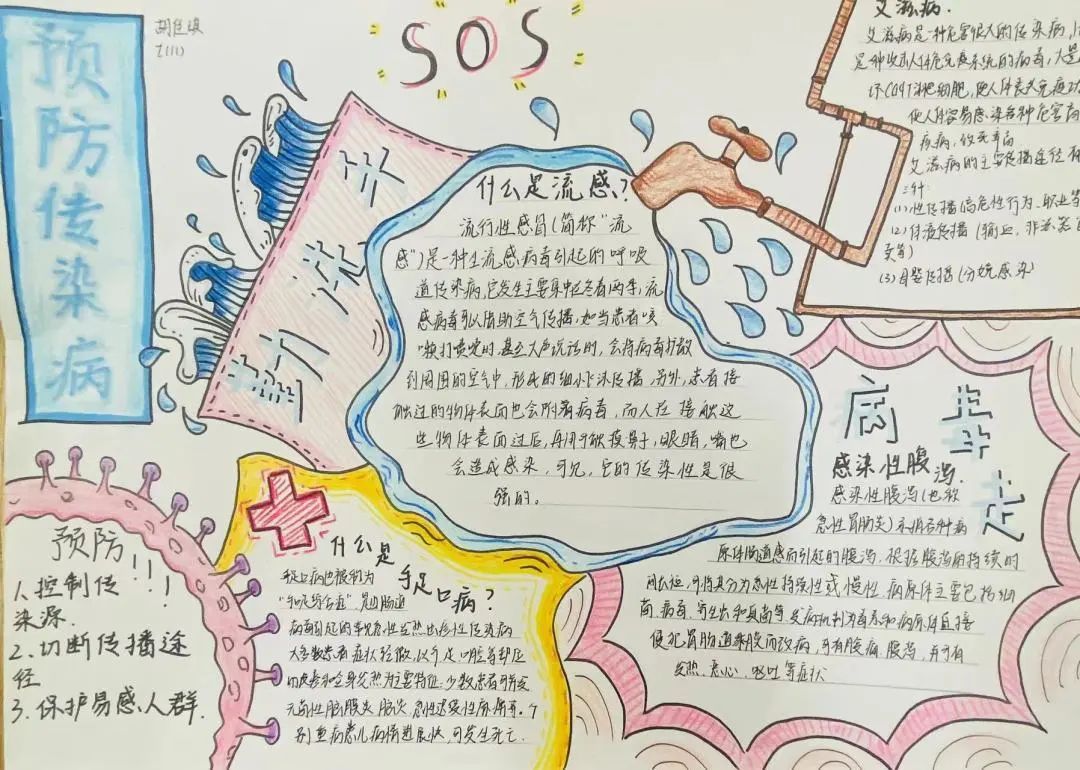 预防传染病
SOS
勤洗手
什么是流感？
流行性感冒（简称“流
感”）是一种由流感病毒引起的呼吸
道传染病，它发生主要集中在冬春两季，流
感病毒可以借助空气传播，如当患者咳
嗽打喷嚏时，甚至大声说话时，会将病毒扩散
到周围的空气中，形成的细小飞沫传播，另外，患者接
触过的物体表面也会附着病毒，而人在接触这
些物体表面过后，再用手触摸鼻子，眼睛，嘴也
会造成感染，可见，它的传染性是很
强的。
艾滋病.
艾滋病是一种危害很大的传染病，
是种攻击人体免疫系统的病毒，大量
坏CD4T淋巴细胞，使人体丧失免疫功
使人体容易感染各种危害病
疾病，致死率高
艾滋病的主要传播途径有
三种：
(1)性传播（高危性行为、职业等
(2)体液传播（输血，非法
卖等）
(3)母婴传播（分娩感染）
预防！！！
1.控制传
染源.
2.切断传播途
径
3.保护易感人群.
什么是手足口病？
手足口病也被称为
是由肠道
病毒引起的常见急性发热出疹性传染病
大多数患者症状轻微，以手足、口腔等部位
的皮疹和全身发热为主要特征，少数患者可并发
无菌性脑膜炎，脑炎，急性迟缓性麻痹等。个
别重病患儿病情进展快，可发生死亡.
病毒走
感染性腹泻.
感染性腹泻（也称
急性胃肠炎）是指各种病
原体肠道感染引起的腹泻，根据腹泻的持续时
间长短，可将其分为急性持续性或慢性，病原体主要包括细
菌，病毒，寄生虫和真菌等，发病机制为毒素和病原体直接
侵犯胃肠道黏膜而致病，可有腹痛，腹泻，并可有
发热，恶心，呕吐等症状